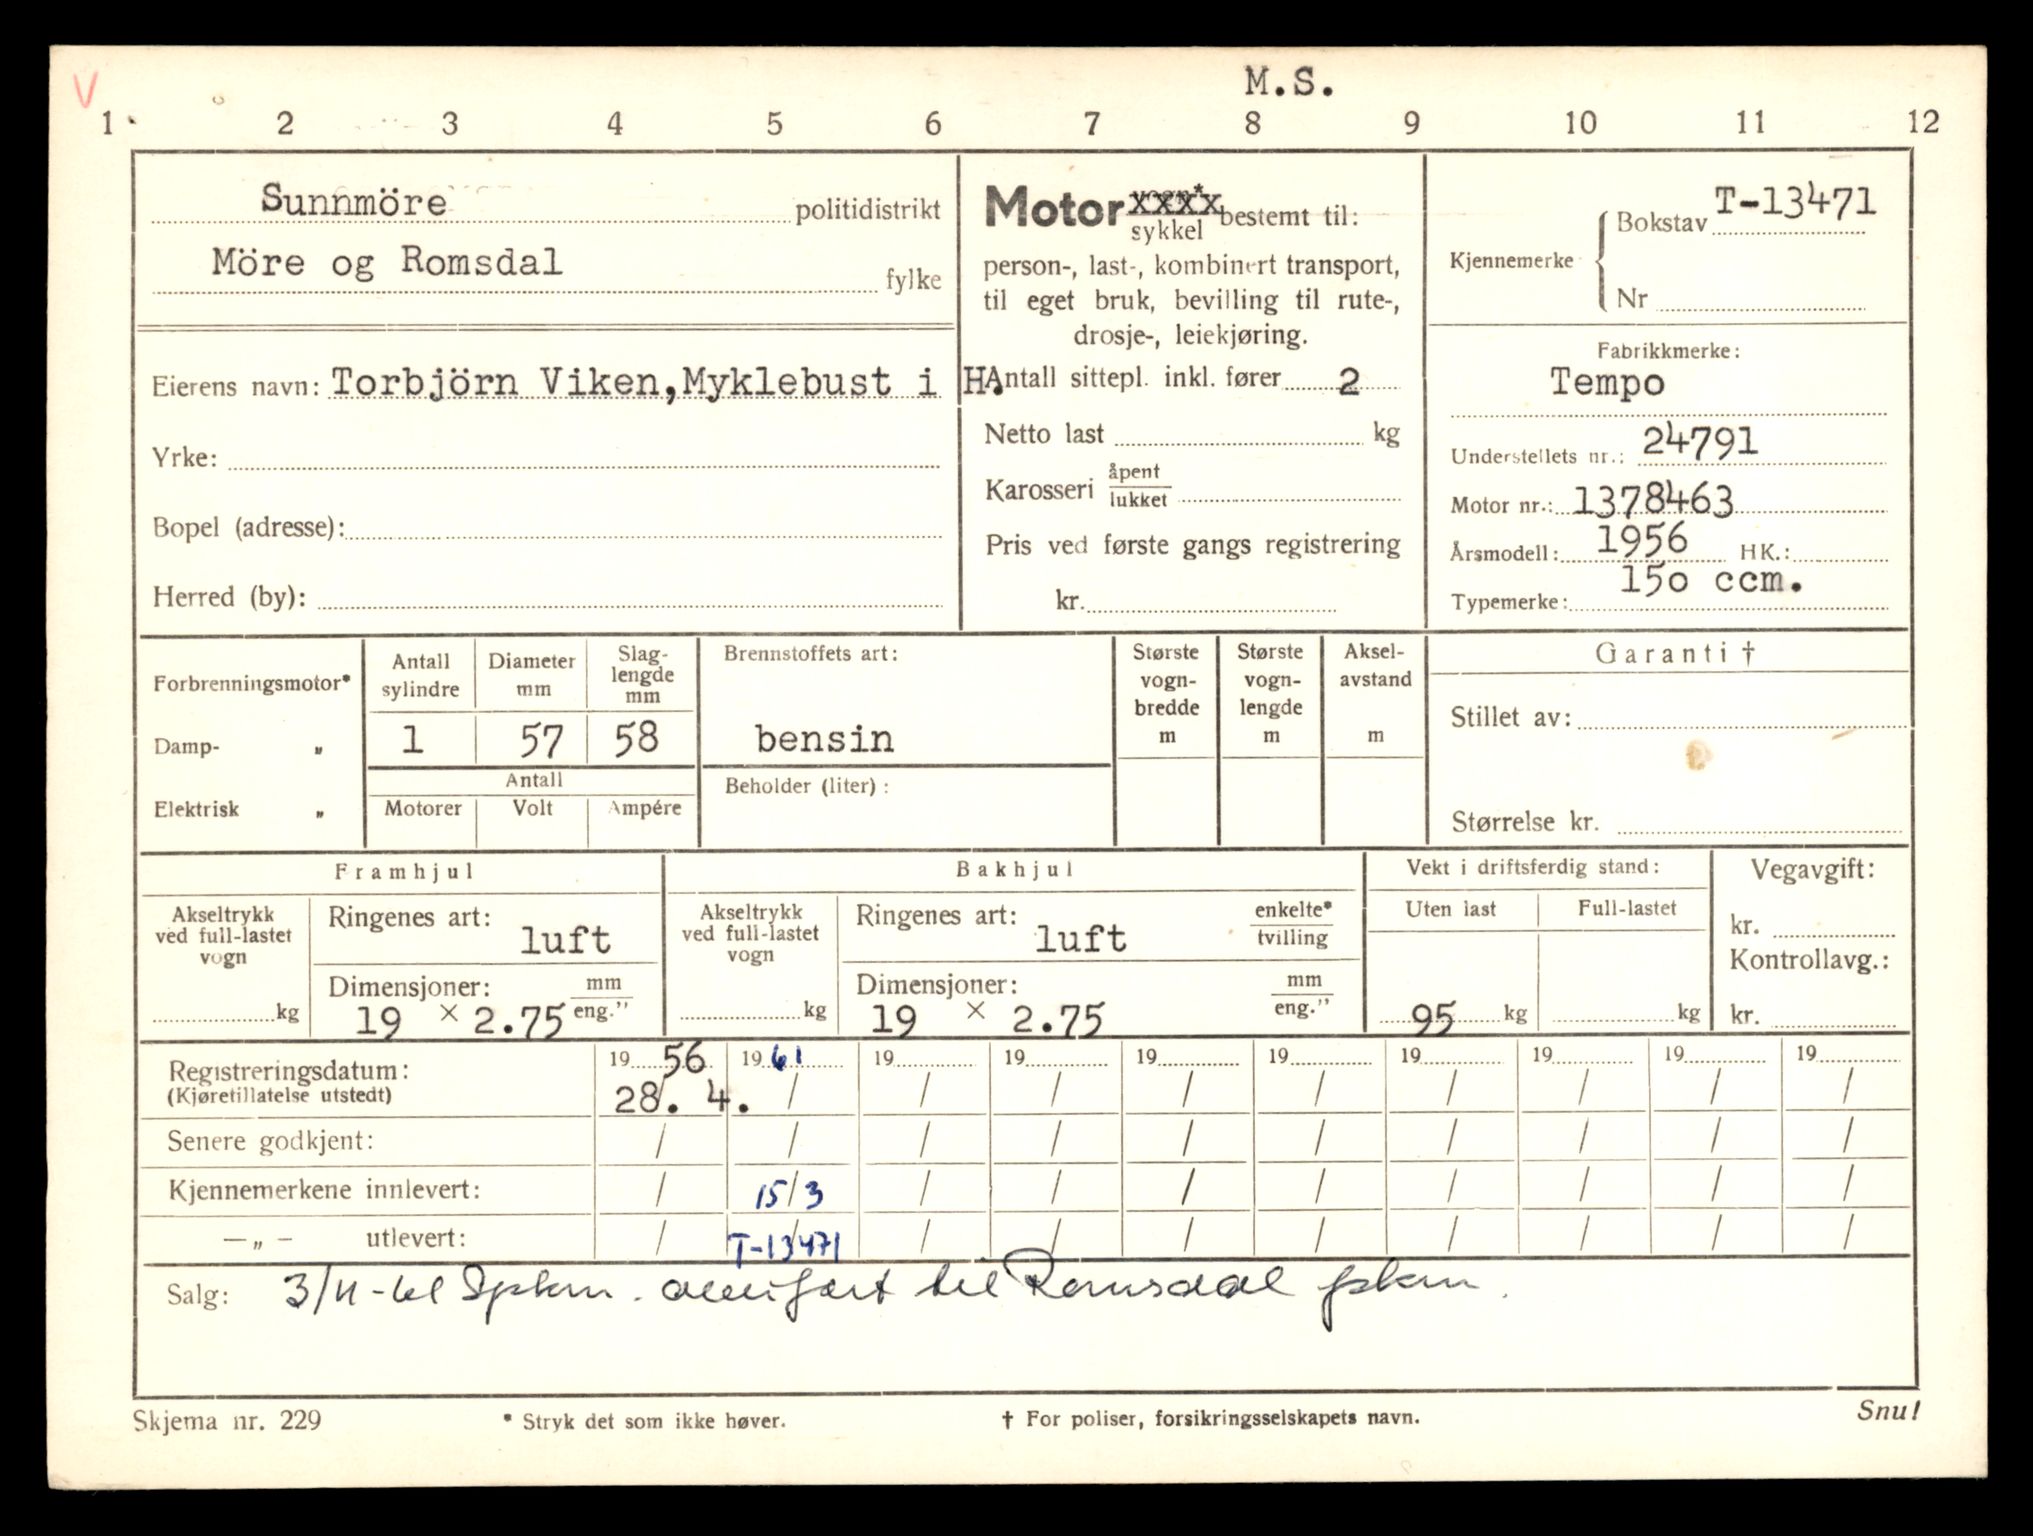 V
M.S.
1 2 3 4 5 6 7 8 9 10 11 12
Sunnmöre politidistrikt
Möre og Romsdal fylke
Eierens navn: Torbjörn Viken,Myklebust i H.
Yrke:
Bopel (adresse):
Herred (by):
Motor vogn* sykkel bestemt til:
person-, last-, kombinert transport,
til eget bruk, bevilling til rute-,
drosje-, leiekjøring.
Antall sittepl. inkl. fører 2
Netto last kg
Karosseri åpent lukket
Pris ved første gangs registrering
kr.
Kjennemerke Bokstav T-13471
Nr
Fabrikkmerke:
Tempo
Understellets nr.: 24791
Motor nr.: 1378463
Årsmodell: 1956 HK.:
Typemerke: 150 ccm.
Forbrenningsmotor*
Damp- „
Elektrisk „
Antall sylindre
Diameter mm
Slag-
lengde
mm
1 57 58
Antall
Motorer Volt Ampére
Brennstoffets art:
bensin
Beholder (liter):
Største
vogn-
bredde
m
Største
vogn-
lengde
m
Aksel-
avstand
m
Garanti †
Stillet av:
Størrelse kr.
Framhjul
Akseltrykk
ved full-lastet
vogn
kg
Ringenes art:
luft
Dimensjoner: mm
19 × 2.75 eng."
Bakhjul
Akseltrykk
ved full-lastet
vogn
kg
Ringenes art: enkelte*
luft tvilling
Dimensjoner: mm
19 × 2.75 eng."
Vekt i driftsferdig stand:
Uten last Full-lastet
95 kg kg
Vegavgift:
kr.
Kontrollavg.:
kr.
Registreringsdatum: 19 56 19 61 19 19 19 19 19 19 19 19
(Kjøretillatelse utstedt) 28. 4. / / / / / / / / /
Senere godkjent: / / / / / / / / / /
Kjennemerkene innlevert: / 15/3 / / / / / / / /
— „ — utlevert: / T-13471 / / / / / / / /
Salg: 3/11-61 Spkm. overført til Romsdal pkm.
Skjema nr. 229 * Stryk det som ikke høver. † For poliser, forsikringsselskapets navn. Snu!